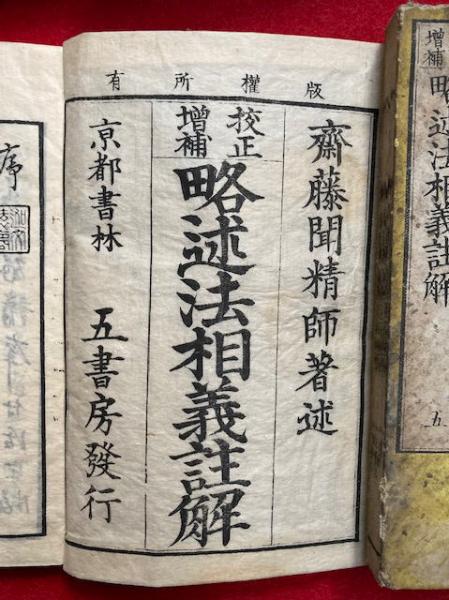 增補
略述法相義註解
五
版權所有
齋藤聞精師著述
校正
增補
略述法相義註解
亰都書林
五書房發行
序